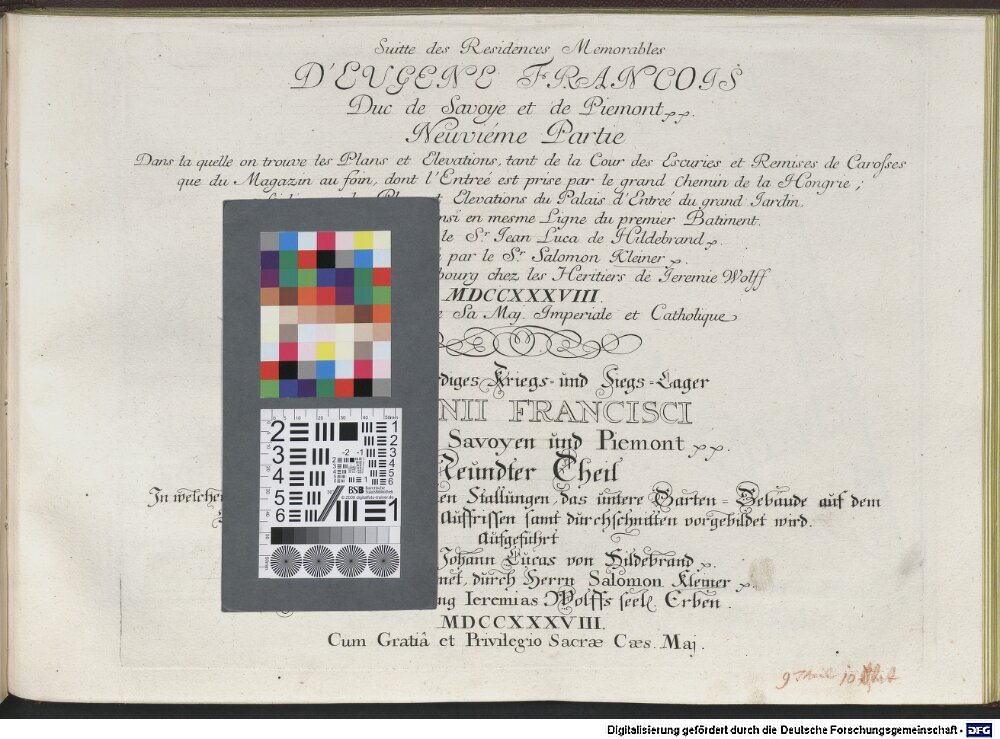 Suitte des Residences Memorables
D'EUGENE FRANCOIS
Duc de Savoye et de Piemont
Neuviéme Partie
Dans la quelle on trouve les Plans et Elevations, tant de la Cour des Escuries et Remises de Carosses
que du Magazin au foin, dont l'Entreé est prise par le grand Chemin de la Hongrie ;
Elevations du Palais d'Entreé du grand Iardin
en mesme Ligne du premier Batiment.
le Sr. Iean Luca de Hildebrand
par le Sr. Salomon Kleiner
bourg chez les Heritiers de Ieremie Wolff
MDCCXXXVIII.
Sa Maj. Imperiale et Catholique
diges Kriegs- und Siegs-Lager
NII FRANCISCI
Savoyen und Piemont
Neundter Theil
In welcher
en Stallungen, das untere Garten-Gebäude auf dem
Auffrissen samt durchschnitten vorgebildet wird.
Aufgeführt
Johann Lucas von Hildebrand
net, durch Herrn Salomon Kleiner
ng Ieremias Wolffs seel. Erben.
MDCCXXXVIII.
Cum Gratiâ et Privilegio Sacræ Cæs. Maj.
9 Theil 10
2 3 4 5 6
1 2 3 4 5 6
-2 -1
BSB Bayerische Staatsbibliothek
1
Digitalisierung gefördert durch die Deutsche Forschungsgemeinschaft - DFG